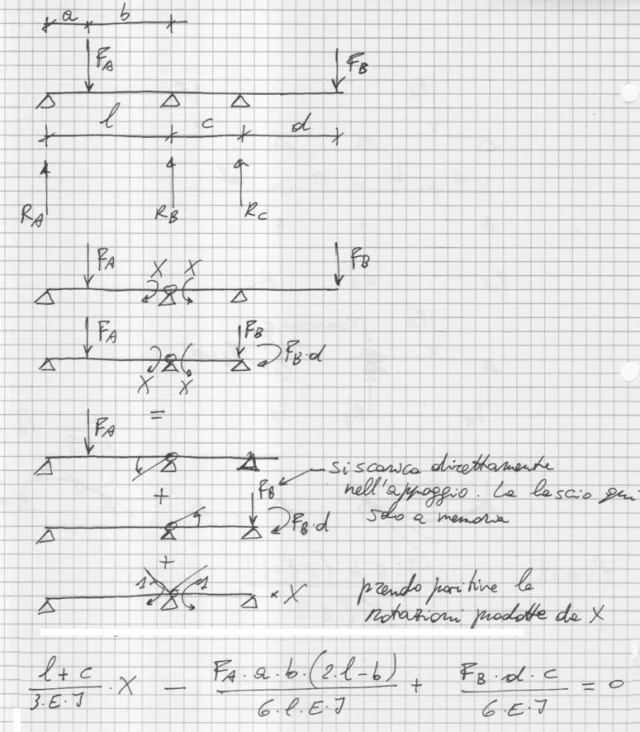 a b
F_A F_B
l c d
R_A R_B R_C
F_A X X F_B
F_A F_B F_B·d
X X
=
F_A
si scarica direttamente
nell'appoggio. La lascio qui
solo a memoria
+
F_B F_B·d
+
1 1 · X
prendo positive le
rotazioni prodotte da X
l + c / 3·E·J · X − F_A·a·b·(2·l−b) / 6·l·E·J + F_B·d·c / 6·E·J = 0